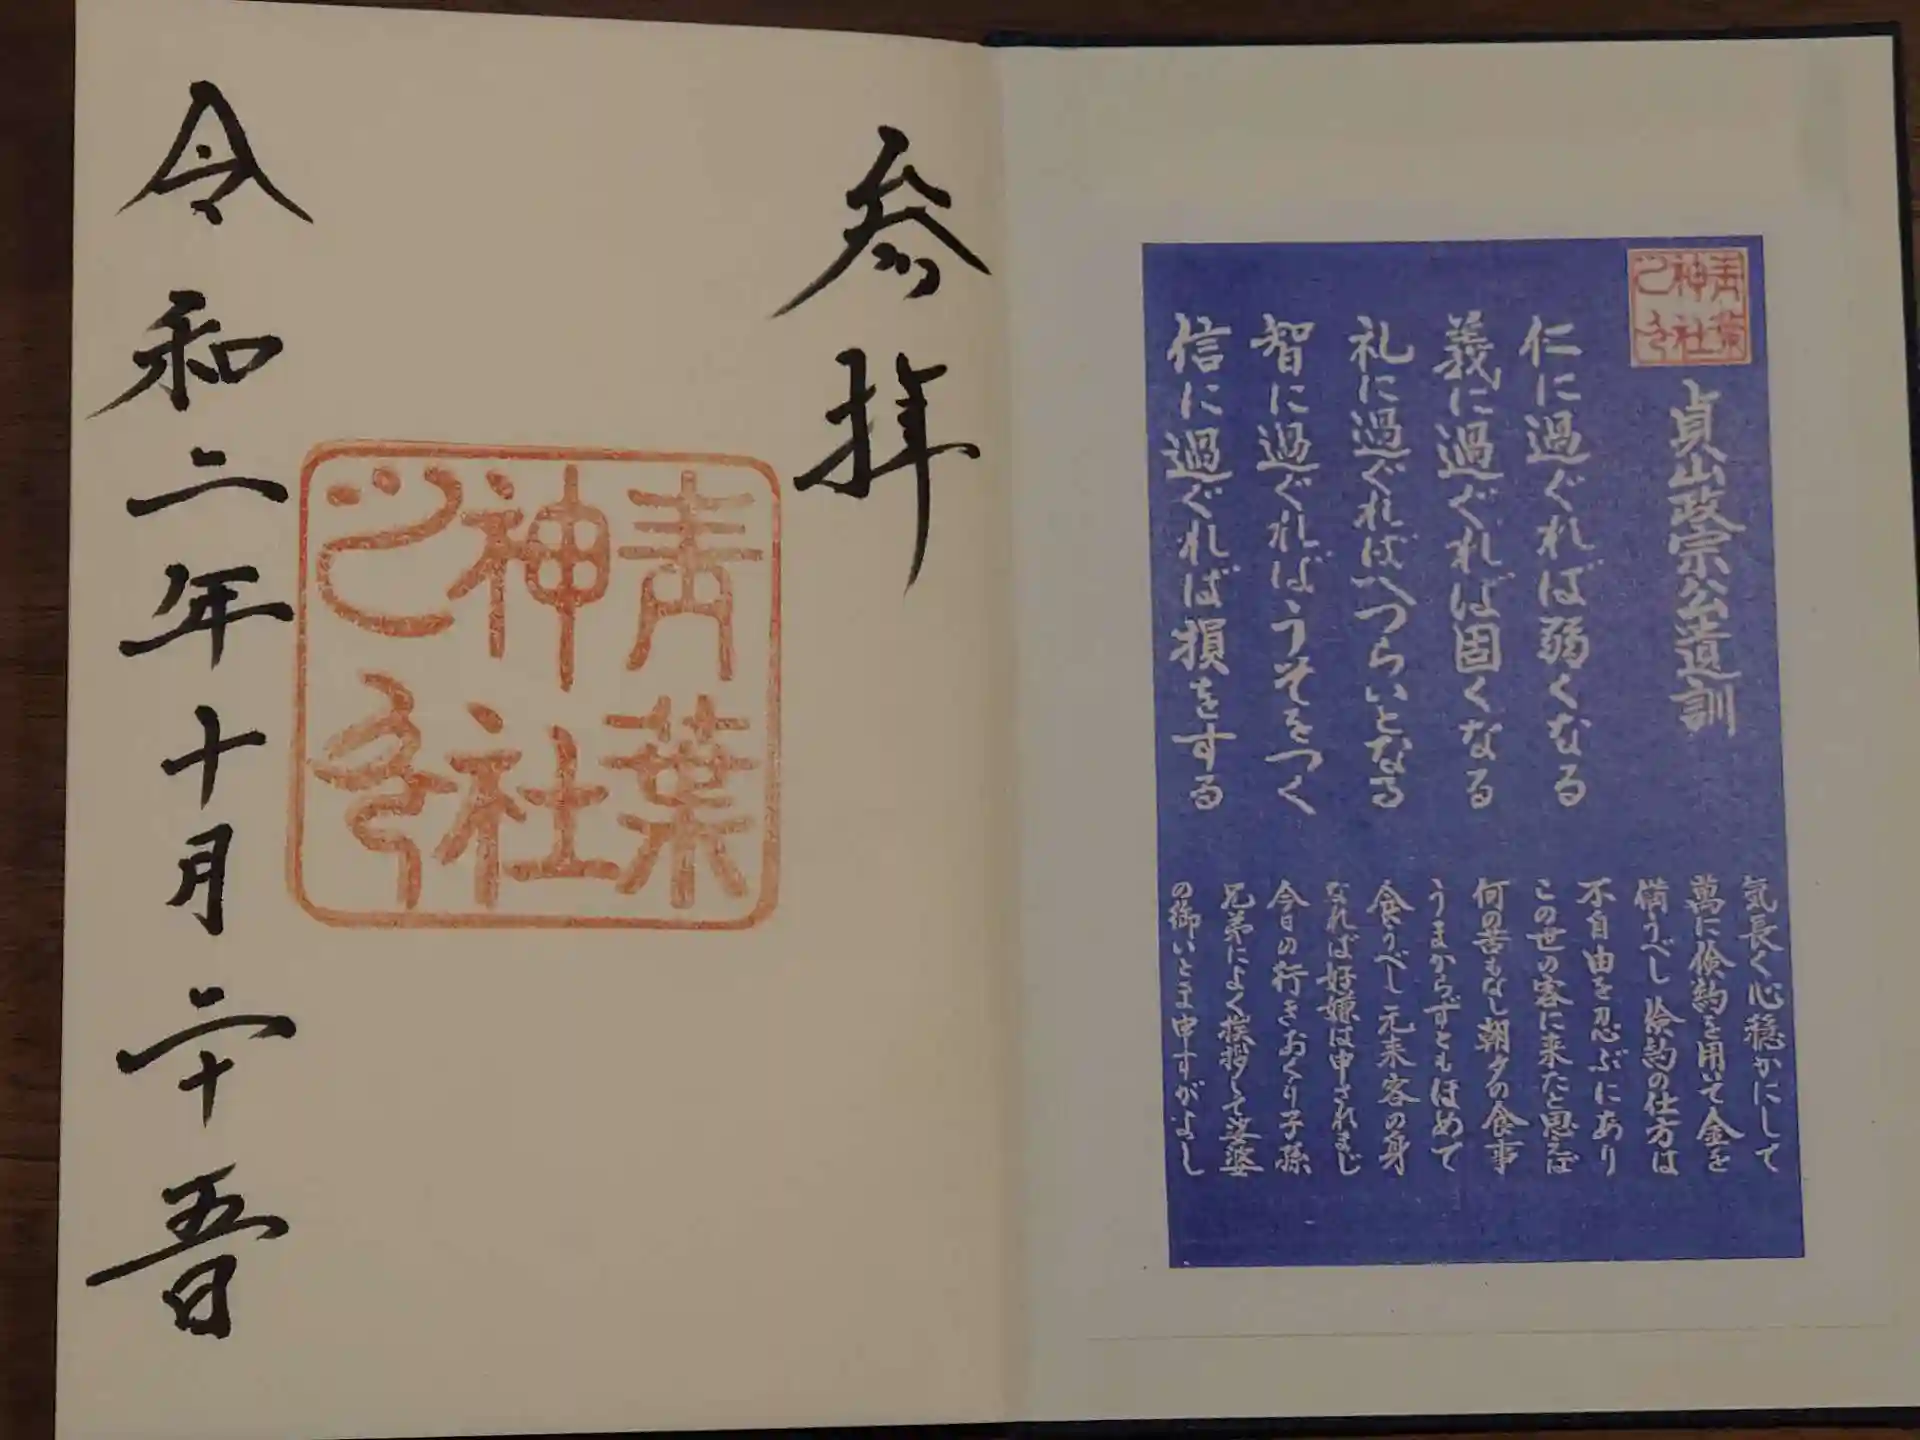 青葉
神社
之印
貞山政宗公遺訓
仁に過ぐれば弱くなる
義に過ぐれば固くなる
礼に過ぐればへつらいとなる
智に過ぐればうそをつく
信に過ぐれば損をする
気長く心穏かにして
萬に倹約を用いて金を
備うべし倹約の仕方は
不自由を忍ぶにあり
この世の客に来たと思えば
何の苦もなし朝夕の食事
うまからずともほめて
食うべし元来客の身
なれば好嫌は申されまじ
今日の行きおくり子孫
兄弟によく挨拶して娑婆
の御いとま申すがよし
参拝
青葉
神社
之印
令和二年十月二十五日